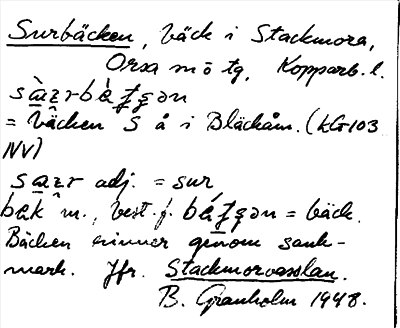 Surbäcken, bäck i Stackmora,
Orsa sn ö tg, Kopparb. l.
= bäcken S å i Bläckåm. (KG103
NV)
adj. = sur,
bäk m., best. f. = bäck.
Bäcken rinner genom sank-
mark. Jfr. Stackmorvasslan.
B. Granholm 1948.